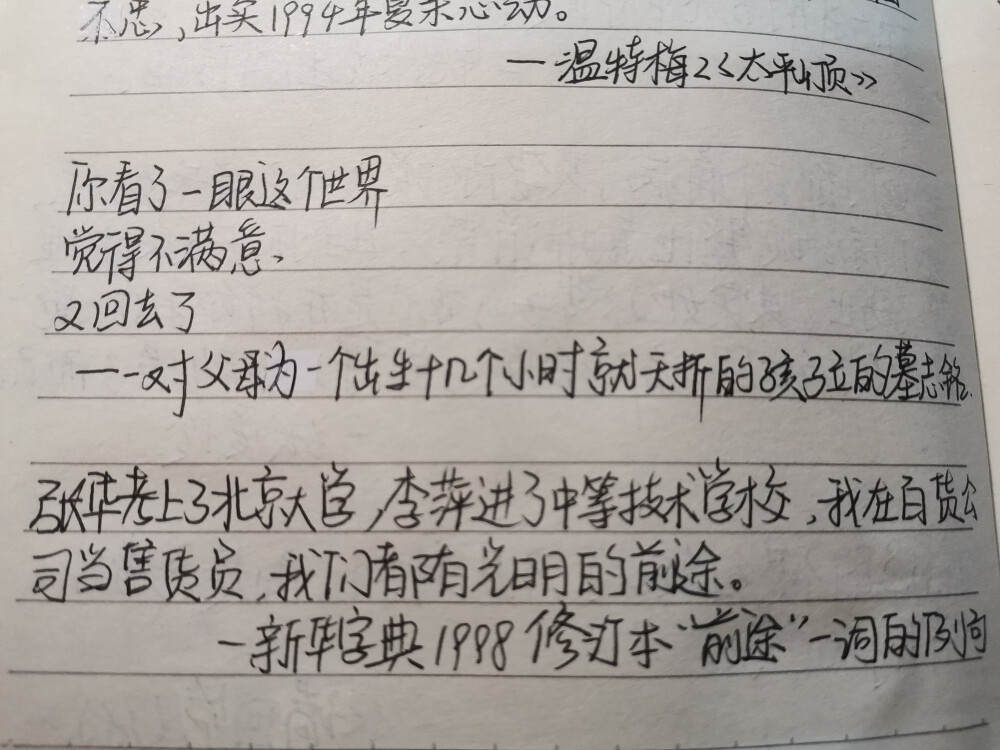 不忠，出卖1994年夏末心动。
——温特梅2《太平山顶》
你看了一眼这个世界
觉得不满意、
又回去了
——一对父母为一个出生十几个小时就夭折的孩子立的墓志铭.
张华考上了北京大学，李萍进了中等技术学校，我在百货公
司当售货员，我们都有光明的前途。
—新华字典1998修订本“前途”一词的例句